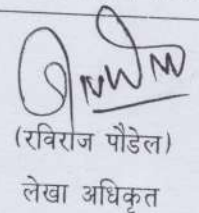 (रविराज पौडेल)
लेखा अधिकृत